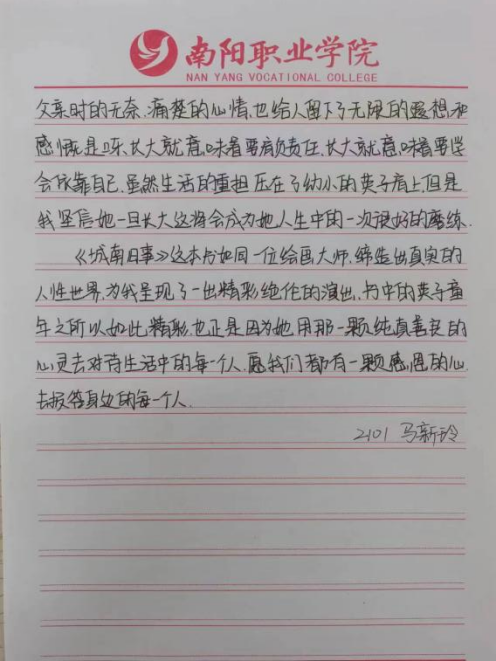 南阳职业学院
NAN YANG VOCATIONAL COLLEGE
父亲时的无奈、痛楚的心情,也给人留下了无限的遐想和
感慨是呀,长大就意味着要肩负责任,长大就意味着要学
会依靠自己,虽然生活的重担压在了幼小的英子肩上,但是
我坚信她一旦长大这将会成为她人生中的一次很好的磨练.
《城南旧事》这本书如同一位绘画大师,缔造出真实的
人性世界,为我呈现了一出精彩绝伦的演出,书中的英子童
年之所以如此精彩,也正是因为她用那一颗纯真善良的
心灵去对待生活中的每一个人.愿我们都有一颗感恩的心
去报答身边的每一个人.
2101 马新玲